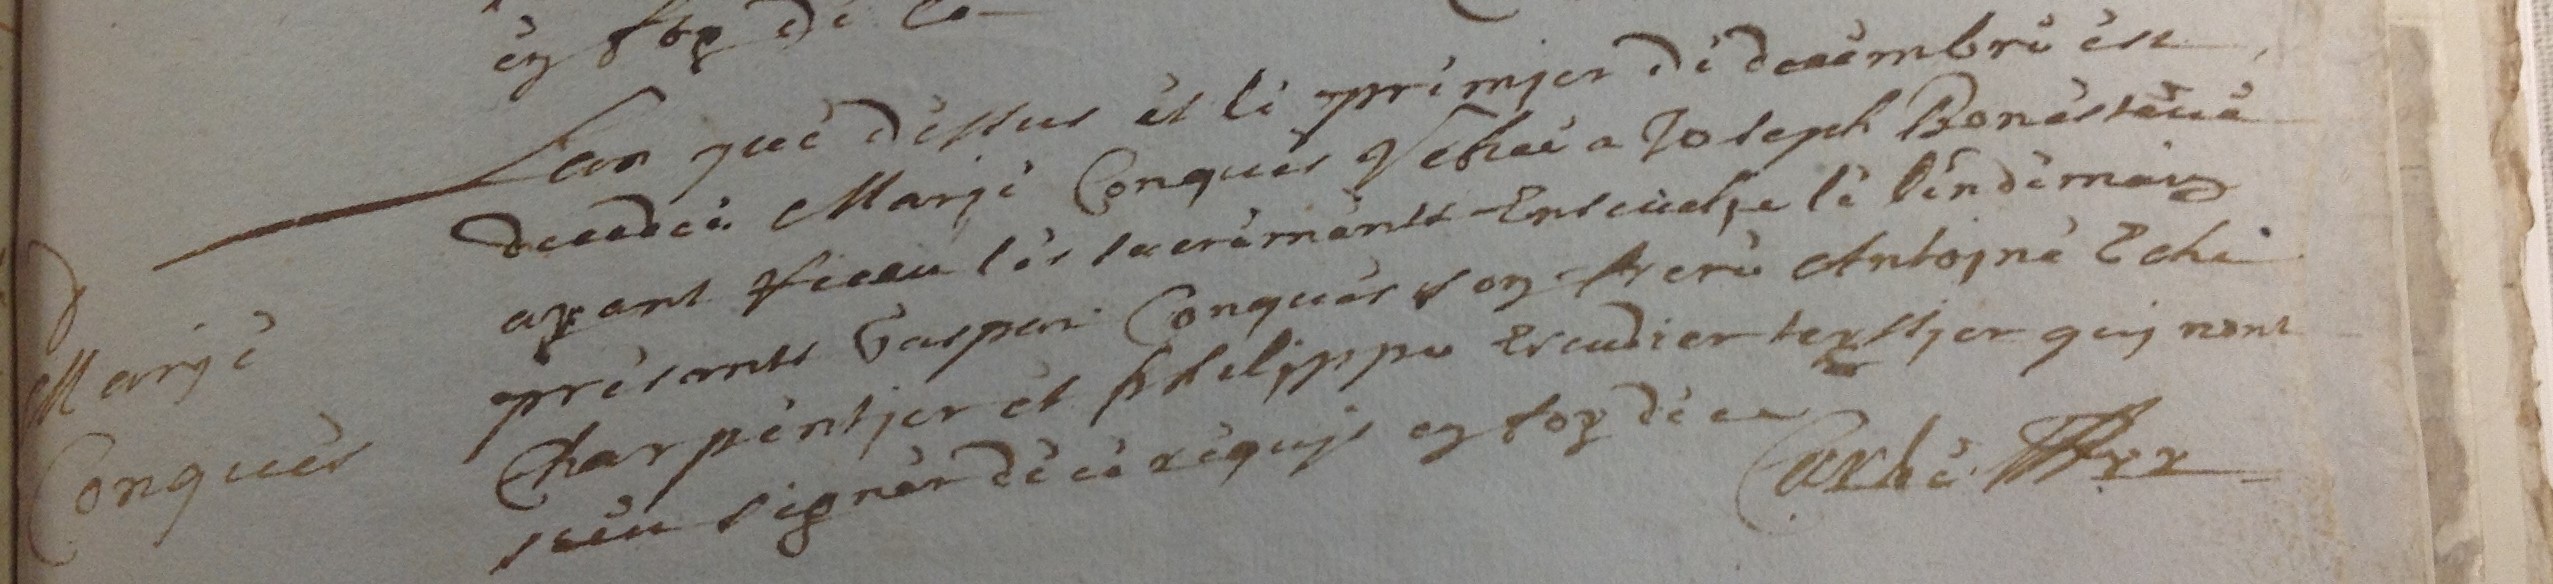 en foy de ce
Lan que dessus et le premjer de decembre est
decedée Marye Conques
ayant receu les sacremants Ensevelje le lendemain
presants Gaspar Conques son frere Antojne
Charpentjer et philippe Escudier qui nont
sceu signer de ce requis en foy de ce
Marye
Conques